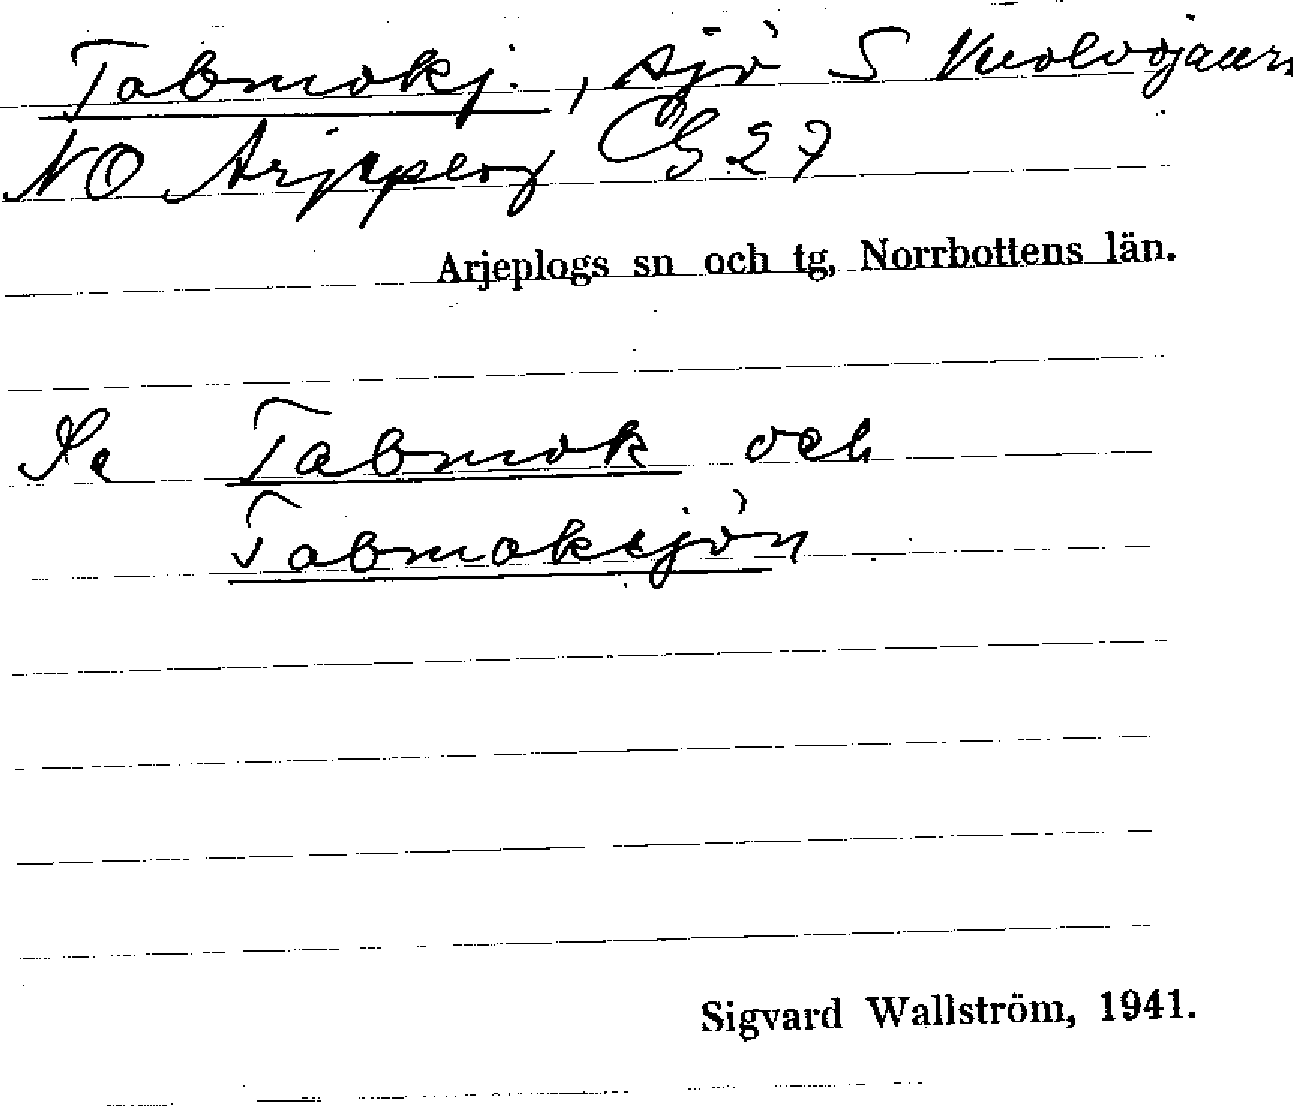 Tabmokj., sjö S
NO Arjeplog CG 27
Arjeplogs sn och tg, Norrbottens län.
Se Tabmok och
Tabmoksjön
Sigvard Wallström, 1941.